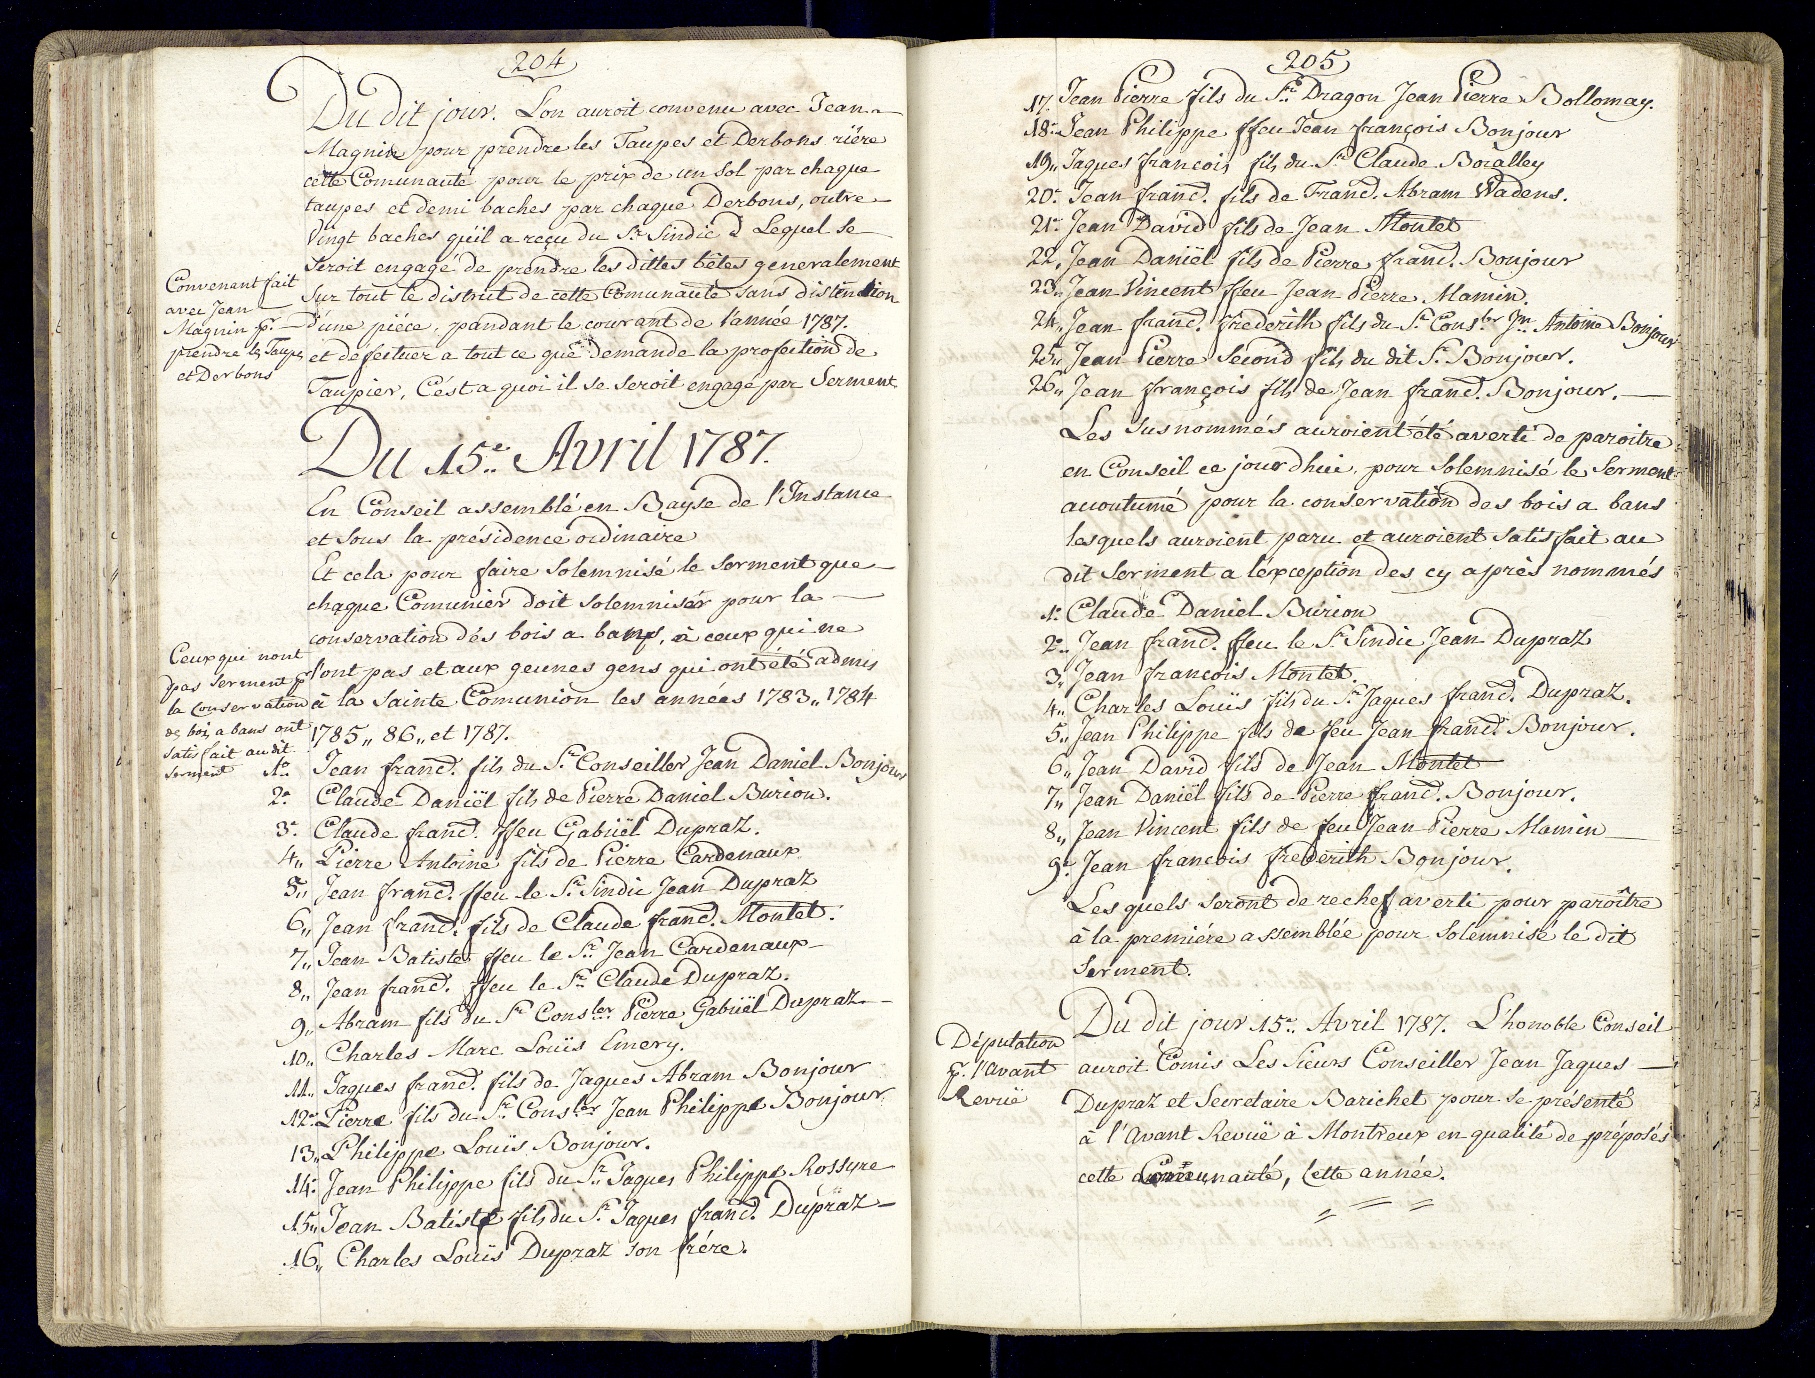 204
Du dit jour. L'on auroit convenu avec Jean
Magnin pour prendre les Taupes et Derbons riére
cette Comunauté pour le prix de un sol par chaque
taupes et demi baches par chaque Derbons, outre
vingt baches qu'il a reçu du Sr. Sindic Lequel se
seroit engagé de prendre les dittes bêtes generalement
Convenant fait
avec Jean
Magnin pr.
prendre les Taupes
et Derbons
sur tout le district de cette Comunauté sans distinction
d'une piéce, pandant le courant de l'année 1787.
et defectuer a tout ce que demande la profection de
Taupier, C'est a quoi il se seroit engagé par Serment
Du 15e. Avril 1787.
En Conseil assemblé en Bayse de l'Instance
et sous la présidence ordinaire
Et cela pour faire solemnisé le serment que
chaque Comunier doit solemnisér pour la
conservation dés bois a bans, à ceux qui ne
Ceux qui nont
pas serment pr
la conservation
des bois a bans ont
satisfait au dit
serment
l'ont pas et aux geunes gens qui ont été admis
à la Sainte Comunion les années 1783,, 1784
1785,, 86,, et 1787.
1o. Jean franc̄. fils du Sr. Conseiller Jean Daniel Bonjour
2e. Claude Daniël fils de Pierre Daniel Burion.
3e. Claude franc̄. ffeu Gabriël Dupraz.
4,, Pierre Antoine fils de Pierre Cardenaux
5,, Jean franc̄. ffeu le Sr. Sindic Jean Dupraz
6,, Jean franc̄. fils de Claude franc̄. Montet.
7,, Jean Batiste ffeu le Sr. Jean Cardenaux
8,, Jean franc̄. ffeu le Sr. Claude Dupraz.
9,, Abram fils du Sr. Consler. Pierre Gabriël Dupraz
10,, Charles Marc Louïs Emery.
11,, Jaques franc̄. fils de Jaques Abram Bonjour
12e. Pierre fils du Sr. Consler Jean Philippe Bonjour
13,, Philippe Louïs Bonjour.
14e. Jean Philippe fils du Sr. Jaques Philippe Rossyre
15,, Jean Batiste fils du Sr. Jaques franc̄. Dupraz
16,, Charles Louïs Dupraz son frére.
205
17. Jean Pierre fils du Sr. Dragon Jean Pierre Bollomay.
18e. Jean Philippe ffeu Jean françois Bonjour
19,, Jaques francois fils du Sr. Claude Boralley
20e. Jean franc̄. fils de Franc̄. Abram Wadens.
21e. Jean David fils de Jean Montet
22,, Jean Daniël fils de Pierre franc̄. Bonjour
23,, Jean Vincent ffeu Jean Pierre Mamin.
24,, Jean franc̄. frederith fils du Sr. Consler Jn. Antoine Bonjour
25,, Jean Pierre Second fils du dit Sr. Bonjour.
26,, Jean françois fils de Jean franc̄. Bonjour.
Les susnommés auroient été averti de paroitre
en Conseil ce jourdhui, pour solemnisé le Serment
acoutumé pour la conservation des bois a bans
lesquels auroient paru et auroient satisfait au
dit serment a léxception des cy après nommés
1e. Claude Daniel Burion
2e. Jean franc̄. ffeu le Sr. Sindic Jean Dupraz
3,, Jean francois Montet.
4,, Charles Louïs fils du Sr. Jaques franc̄. Dupraz.
5,, Jean Philippe fils de feu Jean franc̄. Bonjour.
6,, Jean David fils de Jean Montet
7,, Jean Daniël fils de Pierre franc̄. Bonjour.
8,, Jean Vincent fils de feu Jean Pierre Mamin
9e. Jean francois frederith Bonjour.
Les quels seront de rechef averti pour paroître
à la premiére assemblée pour solemnisé le dit
serment.
Députation
pr. l'avant
Revuë
Du dit jour 15e. Avril 1787. L'honoble Conseil
auroit Comis Les Sieurs Conseiller Jean Jaques
Dupraz et Secretaire Barichet pour se présenté
à l'avant Revuë à Montreux en qualité de préposés
cette Comunauté, cette année.